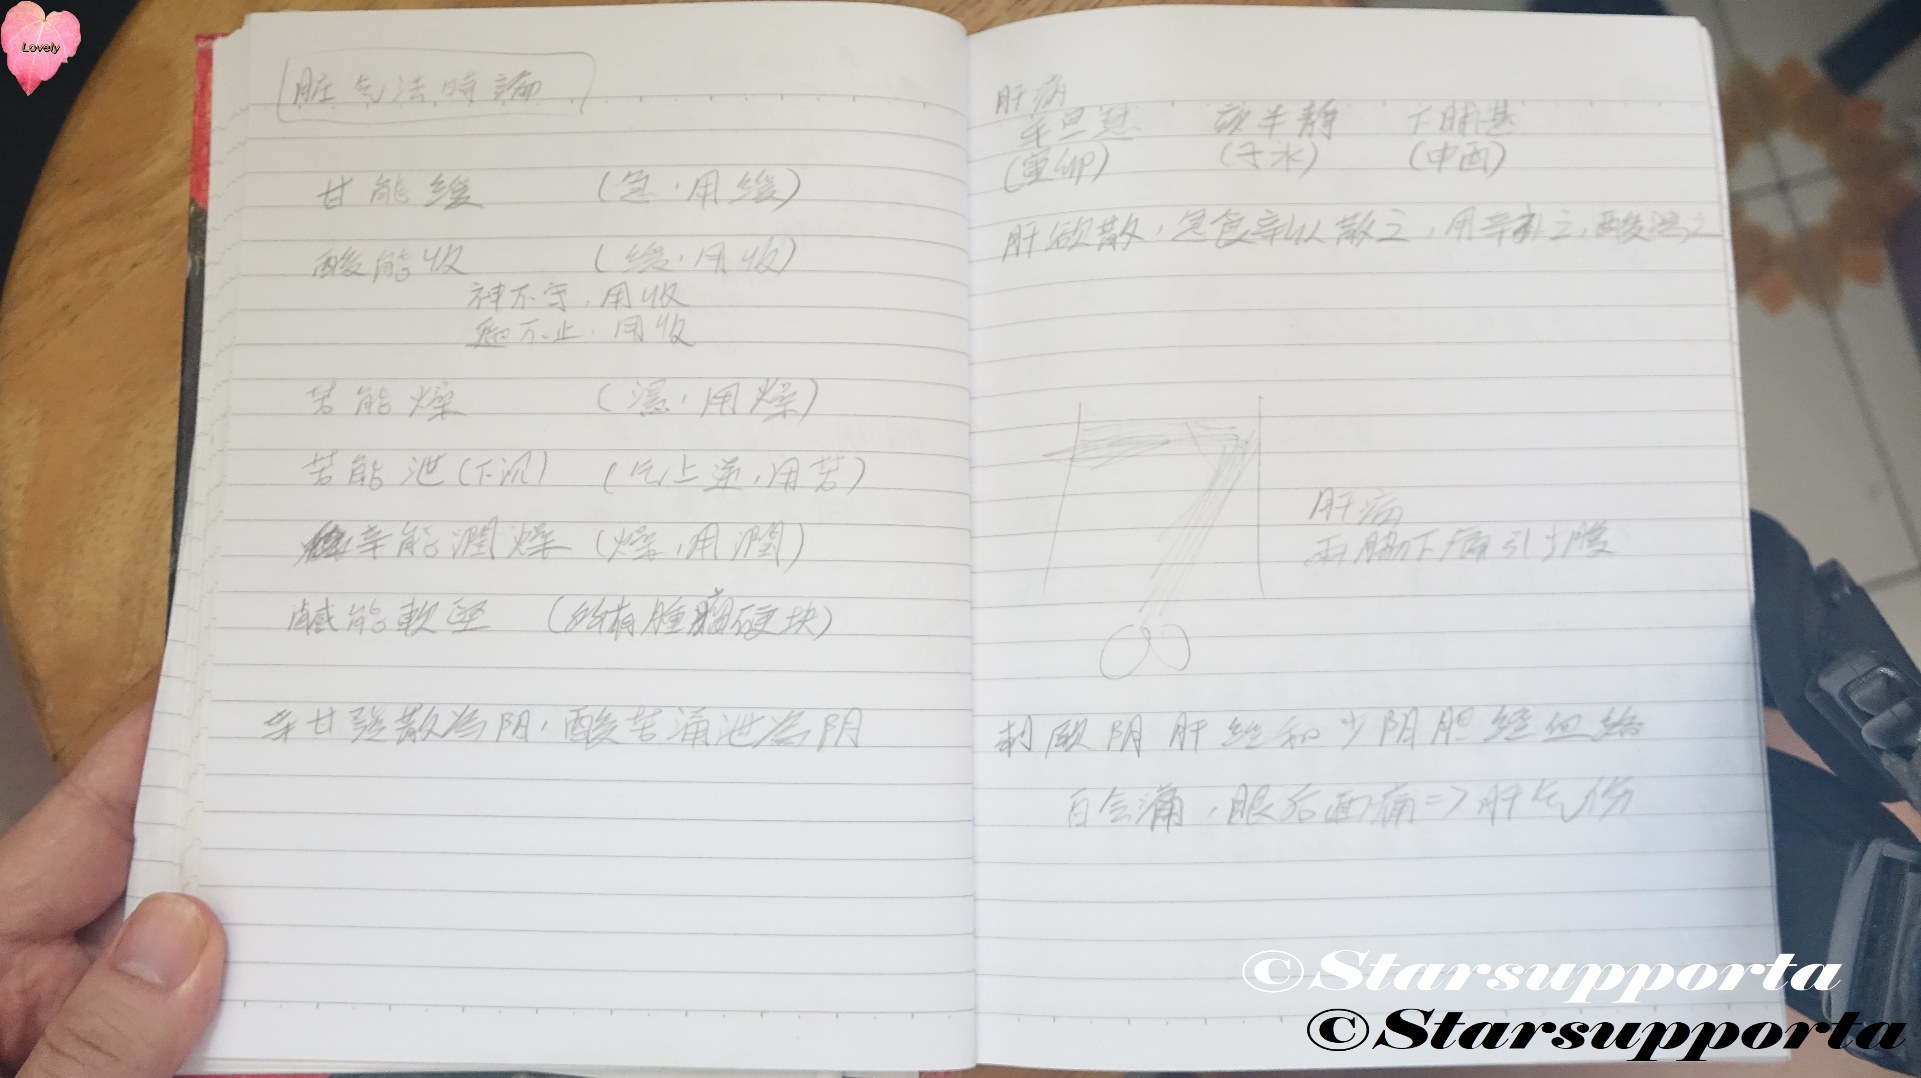 Lovely
脏气法時論
甘能緩 (急,用緩)
酸能收 (緩,用收)
神不守,用收
瀉不止,用收
苦能燥 (濕,用燥)
苦能泄(下沉) (气上逆,用苦)
辛能潤燥 (燥,用潤)
鹹能軟坚 (給有腫瘤硬块)
辛甘發散為阴,酸苦涌泄為阴
肝病
平旦慧 夜半静 下晡甚
(寅卯) (子水) (申酉)
肝欲散,急食辛以散之,用辛補之,酸瀉之
肝病
兩脇下痛引少腹
刺厥阴肝经和少阴胆经血络
百会痛,眼后面痛=>肝气伤
©Starsupporta
©Starsupporta